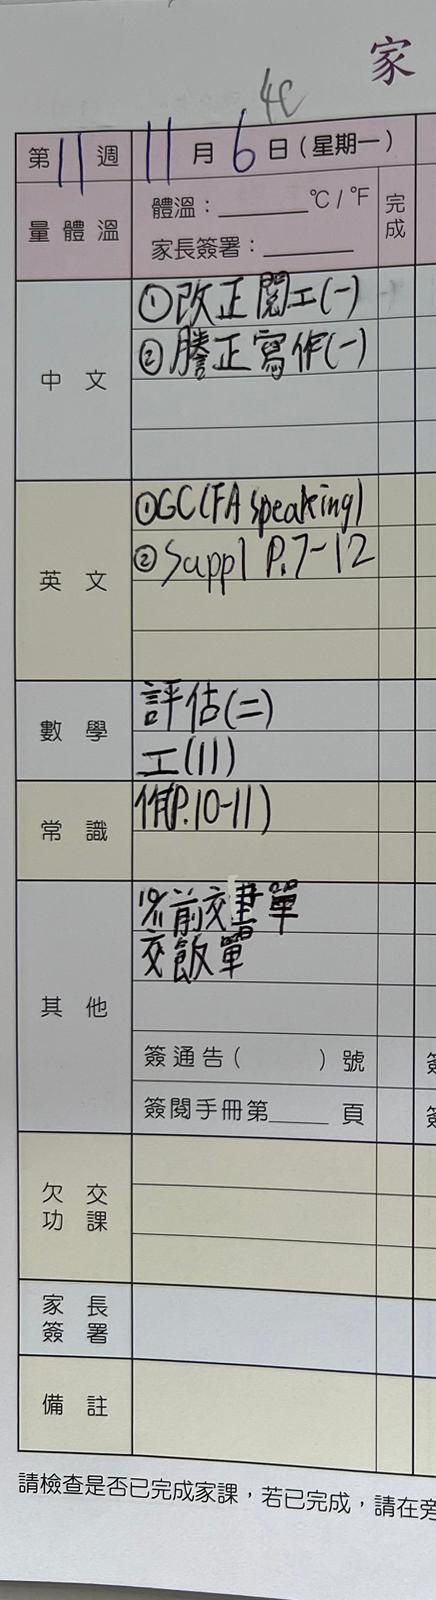 家
4C
第11週 11月6日(星期一)
量體溫 體溫：______°C/°F 完成
家長簽署：______
中文
①改正閱工(一)
②謄正寫作(一)
英文
①GC(FA speaking)
②Suppl P.7-12
數學
評估(二)
工(11)
常識
作(P.10-11)
其他
前交書單
交飯單
簽通告( )號
簽閱手冊第____頁
欠交功課
家長簽署
備註
請檢查是否已完成家課，若已完成，請在旁